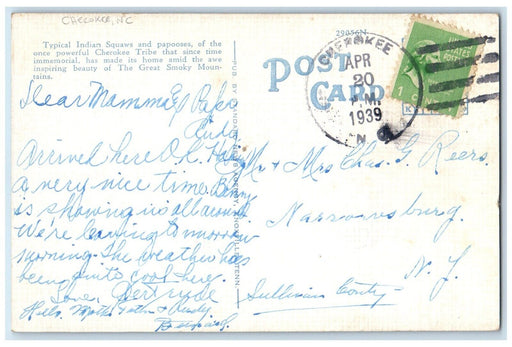 CHEROKEE, NC
Typical Indian Squaws and papooses, of the
once powerful Cherokee Tribe that since time
immemorial, has made its home amid the awe
inspiring beauty of The Great Smoky Moun-
tains.
29856N
POST
CARD
CHEROKEE
APR
20
P.M.
1939
N. C.
UNITED
STATES
POSTAGE
1
Dear Mamma & Papa
Arrived here O.K. Having
a very nice time. Benny
is showing us all around.
We're leaving tomorrow
morning. The weather has
been quite cool here.
Love, Gertrude
Mr & Mrs Chas. G. Reers.
Narrowsburg.
N. Y.
Sullivan County